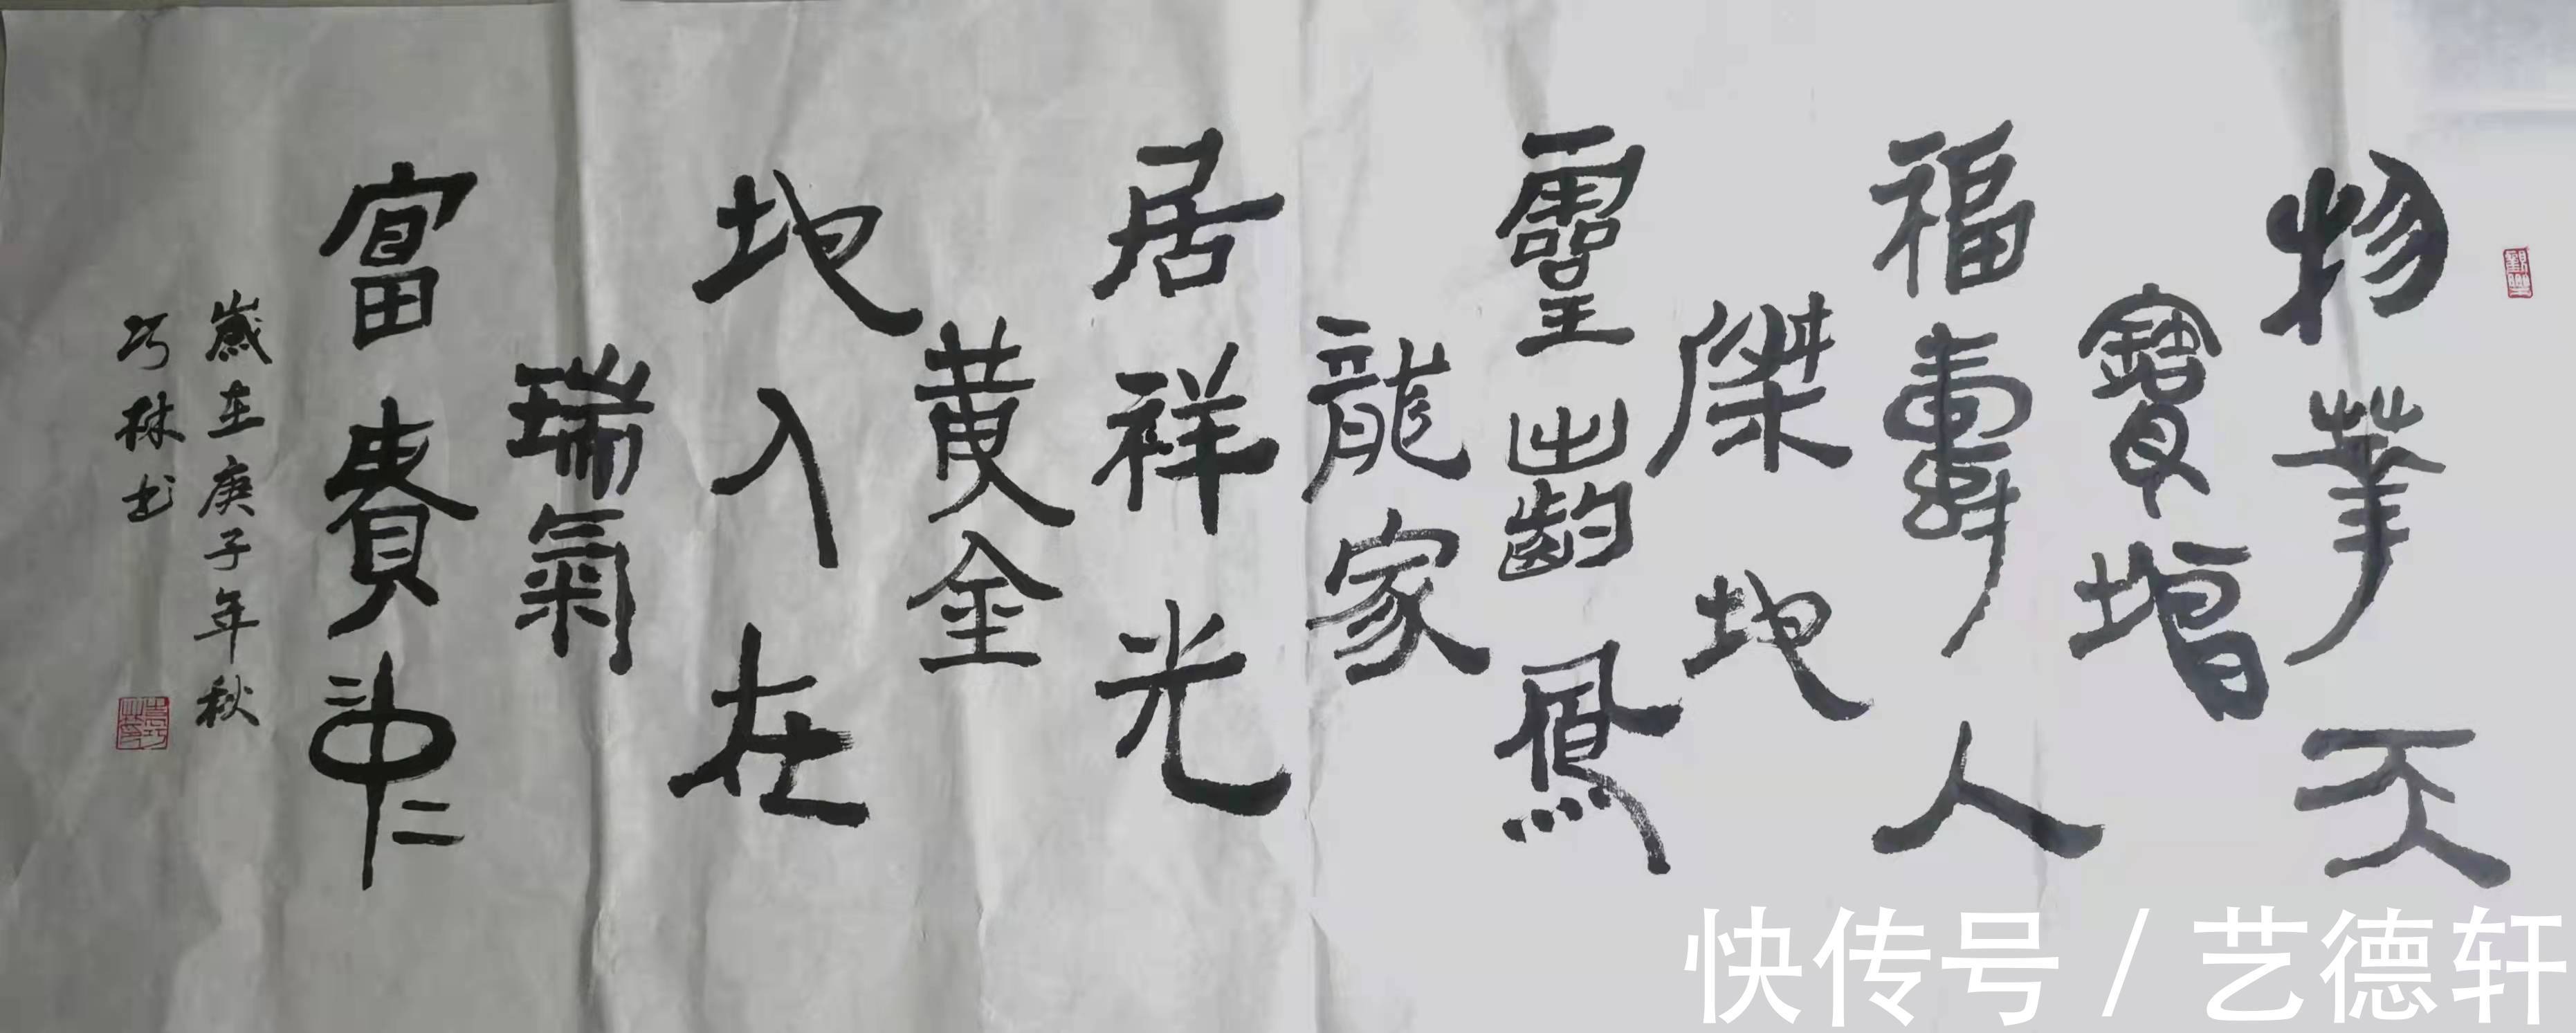 物華天
寶增
福壽人
傑地
靈齡鳳
龍家
居祥光
黄金
地入在
瑞氣
富貴中
歲在庚子年秋
巧林书
快传号 / 艺德轩